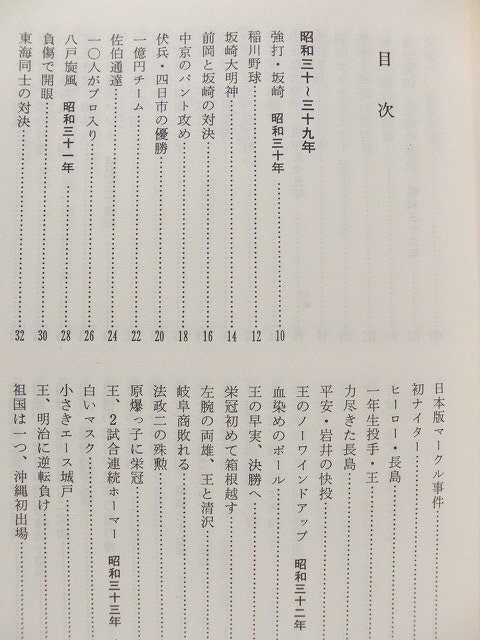 目次
昭和三十～三十九年
強打・坂崎 昭和三十年……10
稲川野球……12
坂崎大明神……14
前岡と坂崎の対決……16
中京のバント攻め……18
伏兵・四日市の優勝……20
一億円チーム……22
佐伯通達……24
一〇人がプロ入り……26
八戸旋風 昭和三十一年……28
負傷で開眼……30
東海同士の対決……32
日本版マークル事件……
初ナイター……
ヒーロー・長島……
一年生投手・王……
力尽きた長島……
平安・岩井の快投……
王のノーワインドアップ 昭和三十二年……
血染めのボール……
王の早実、決勝へ……
栄冠初めて箱根越す……
左腕の両雄、王と清沢……
岐阜商敗れる……
法政二の殊勲……
原爆っ子に栄冠……
王、2試合連続ホーマー 昭和三十三年……
白いマスク……
小さきエース城戸……
王、明治に逆転負け……
祖国は一つ、沖縄初出場……